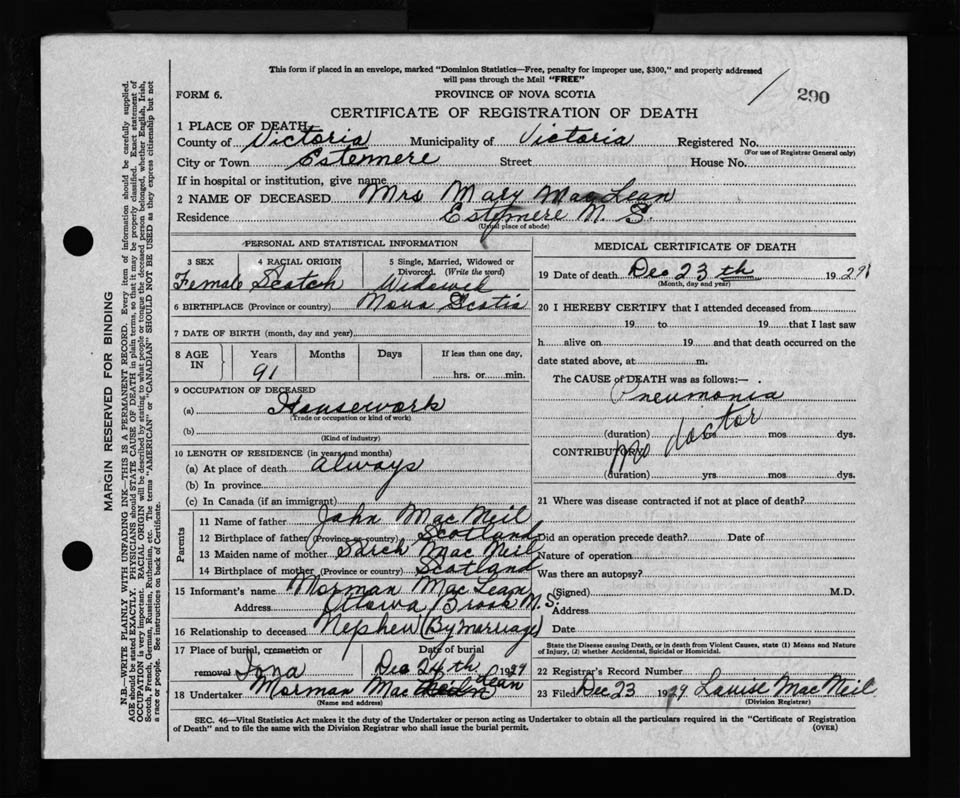 This form if placed in an envelope, marked "Dominion Statistics—Free, penalty for improper use, $300," and properly addressed
will pass through the Mail "FREE"
FORM 6.
PROVINCE OF NOVA SCOTIA
290
CERTIFICATE OF REGISTRATION OF DEATH
1 PLACE OF DEATH
County of Victoria Municipality of Victoria Registered No.
(For use of Registrar General only)
City or Town Estemere Street House No.
If in hospital or institution, give name
2 NAME OF DECEASED Mrs Mary MacLean
Residence Estemere N. S.
(Usual place of abode)
PERSONAL AND STATISTICAL INFORMATION
3 SEX 4 RACIAL ORIGIN 5 Single, Married, Widowed or Divorced. (Write the word)
Female Scotch Widowed
6 BIRTHPLACE (Province or country) Nova Scotia
7 DATE OF BIRTH (month, day and year)
8 AGE IN Years Months Days If less than one day,
91 hrs. or min.
9 OCCUPATION OF DECEASED
(a) Housework
(Trade or occupation or kind of work)
(b)
(Kind of industry)
10 LENGTH OF RESIDENCE (in years and months)
(a) At place of death always
(b) In province
(c) In Canada (if an immigrant)
Parents
11 Name of father John MacNeil
12 Birthplace of father (Province or country) Scotland
13 Maiden name of mother Sarah MacNeil
14 Birthplace of mother (Province or country) Scotland
15 Informant's name Norman MacLean
Address Ottawa Brook N. S.
16 Relationship to deceased Nephew (By marriage)
17 Place of burial, cremation or removal Iona
Date of burial Dec 24th 1929
18 Undertaker Norman Mac Lean
(Name and address)
MEDICAL CERTIFICATE OF DEATH
19 Date of death Dec 23th 1929
(Month, day and year)
20 I HEREBY CERTIFY that I attended deceased from
19 to 19 that I last saw
h alive on 19 and that death occurred on the
date stated above, at m.
The CAUSE of DEATH was as follows:—
Pneumonia
(duration) yrs mos dys.
CONTRIBUTORY
no doctor
(duration) yrs mos dys.
21 Where was disease contracted if not at place of death?
Did an operation precede death? Date of
Nature of operation
Was there an autopsy?
(Signed) M.D.
Address
Date
State the Disease causing Death, or in death from Violent Causes, state (1) Means and Nature
of Injury, (2) whether Accidental, Suicidal or Homicidal.
22 Registrar's Record Number
23 Filed Dec 23 1929 Louise MacNeil
(Division Registrar)
SEC. 46—Vital Statistics Act makes it the duty of the Undertaker or person acting as Undertaker to obtain all the particulars required in the "Certificate of Registration
of Death" and to file the same with the Division Registrar who shall issue the burial permit.
(OVER)
MARGIN RESERVED FOR BINDING
N.B.—WRITE PLAINLY WITH UNFADING INK—THIS IS A PERMANENT RECORD. Every item of information should be carefully supplied.
AGE should be stated EXACTLY. PHYSICIANS should STATE CAUSE OF DEATH in plain terms, so that it may be properly classified. Exact statement of
OCCUPATION is very important. RACIAL ORIGIN will be described by stating to what people or tongue the deceased person belonged, whether English, Irish,
Scotch, French, German, Russian, Ruthenian, etc. The terms "AMERICAN" or "CANADIAN" SHOULD NOT BE USED as they express citizenship but not
a race or people. See instructions on back of Certificate.